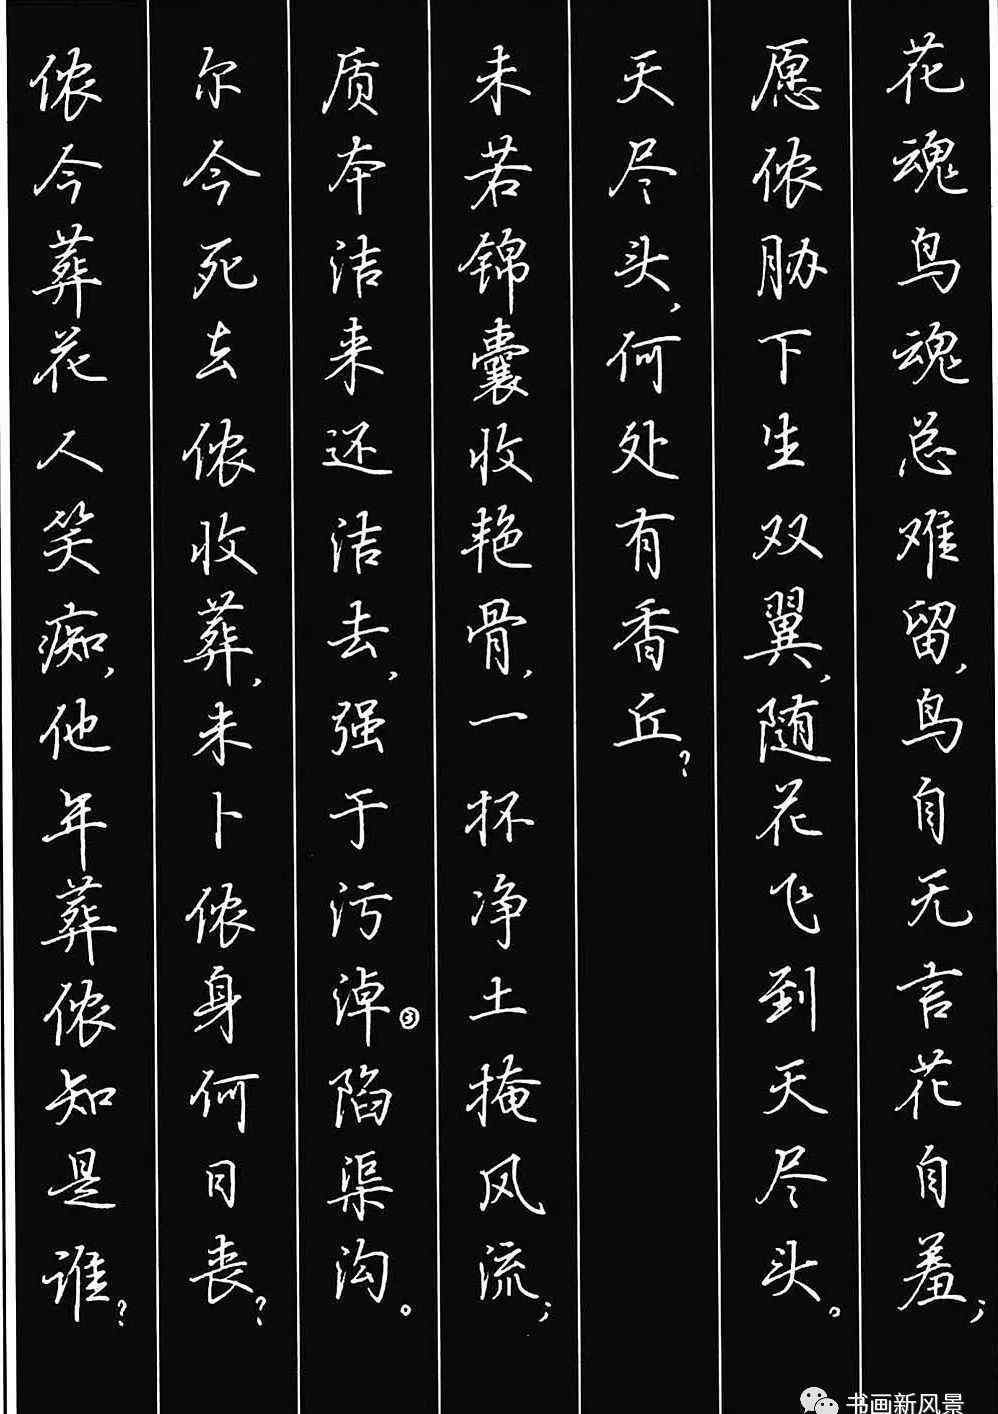 花魂鸟魂总难留,鸟自无言花自羞;
愿侬胁下生双翼,随花飞到天尽头。
天尽头,何处有香丘?
未若锦囊收艳骨,一抔净土掩风流;
质本洁来还洁去,强于污淖③陷渠沟。
尔今死去侬收葬,未卜侬身何日丧?
侬今葬花人笑痴,他年葬侬知是谁?
书画新风景